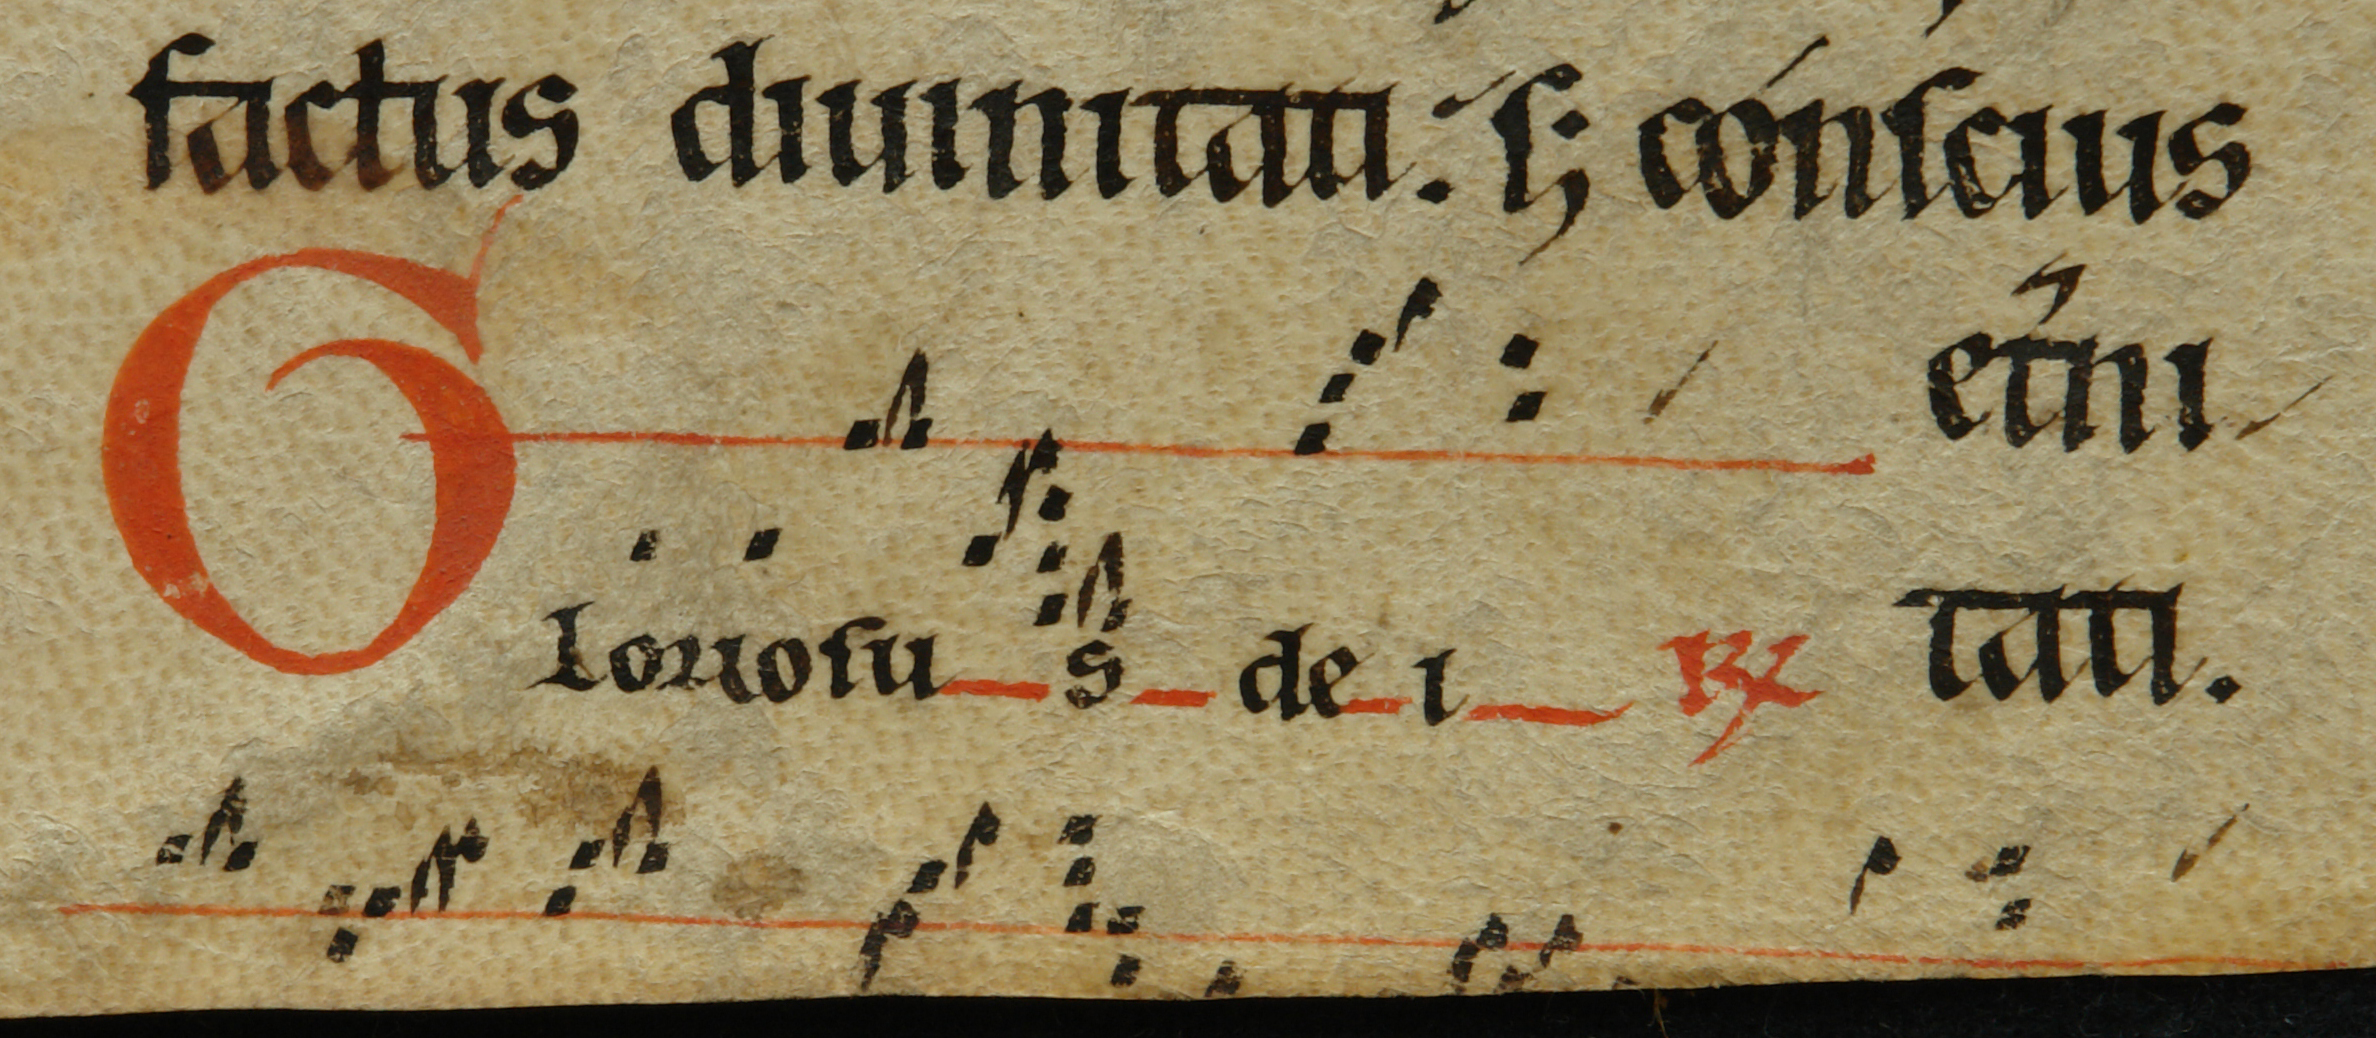 factus diuinitati. sꝫ cónscius
et͛ni
Gloriosus dei ℟ tati.